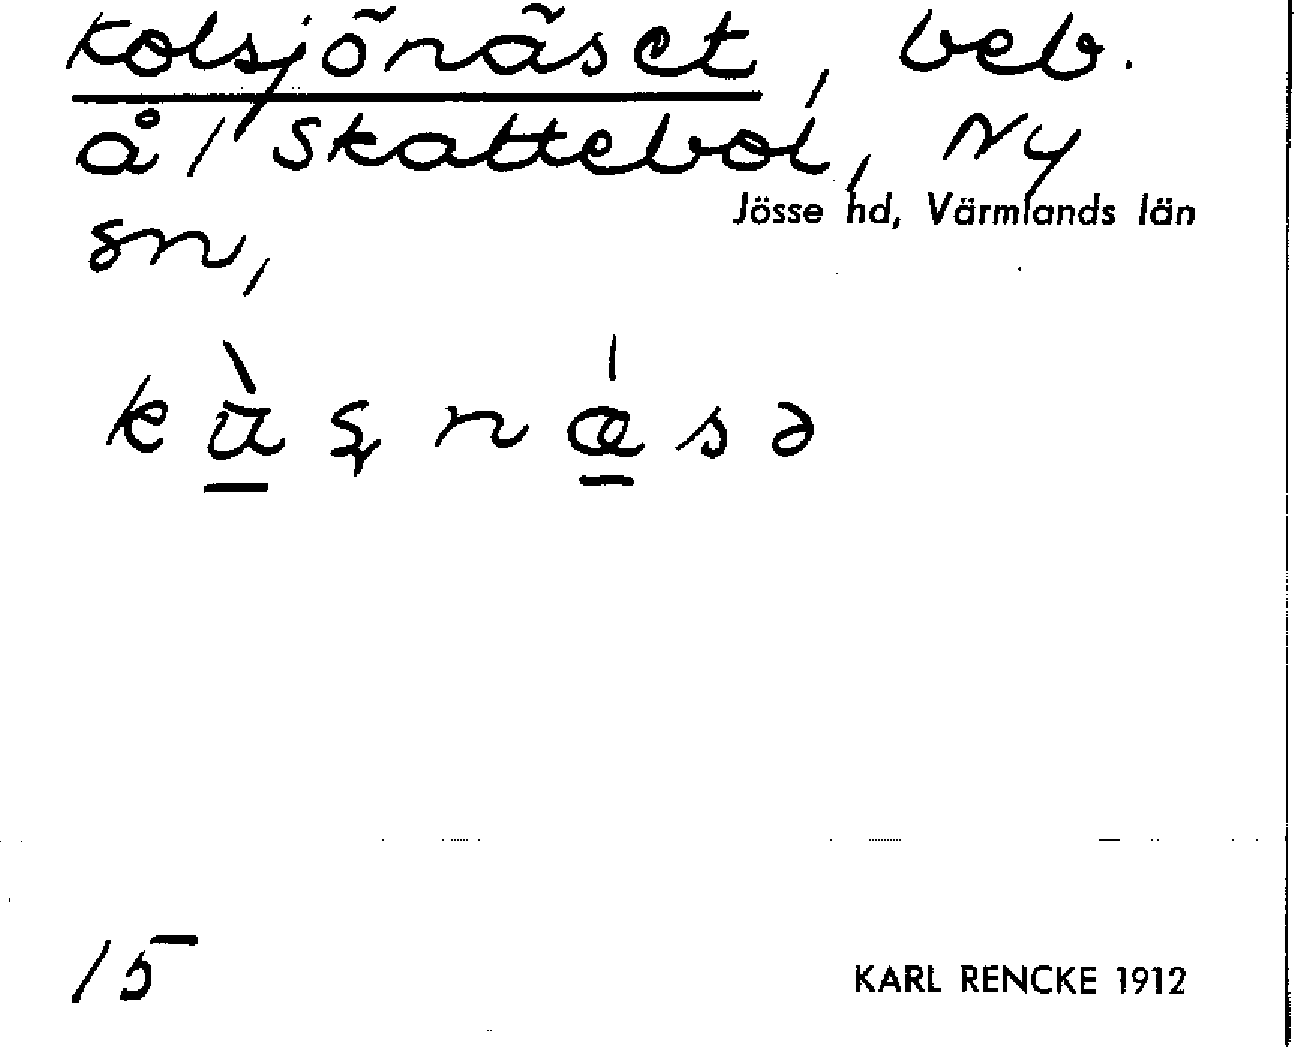 Kolsjönäset, beb.
å/Skattebol, Ny
Jösse hd, Värmlands län
sn,
15
KARL RENCKE 1912